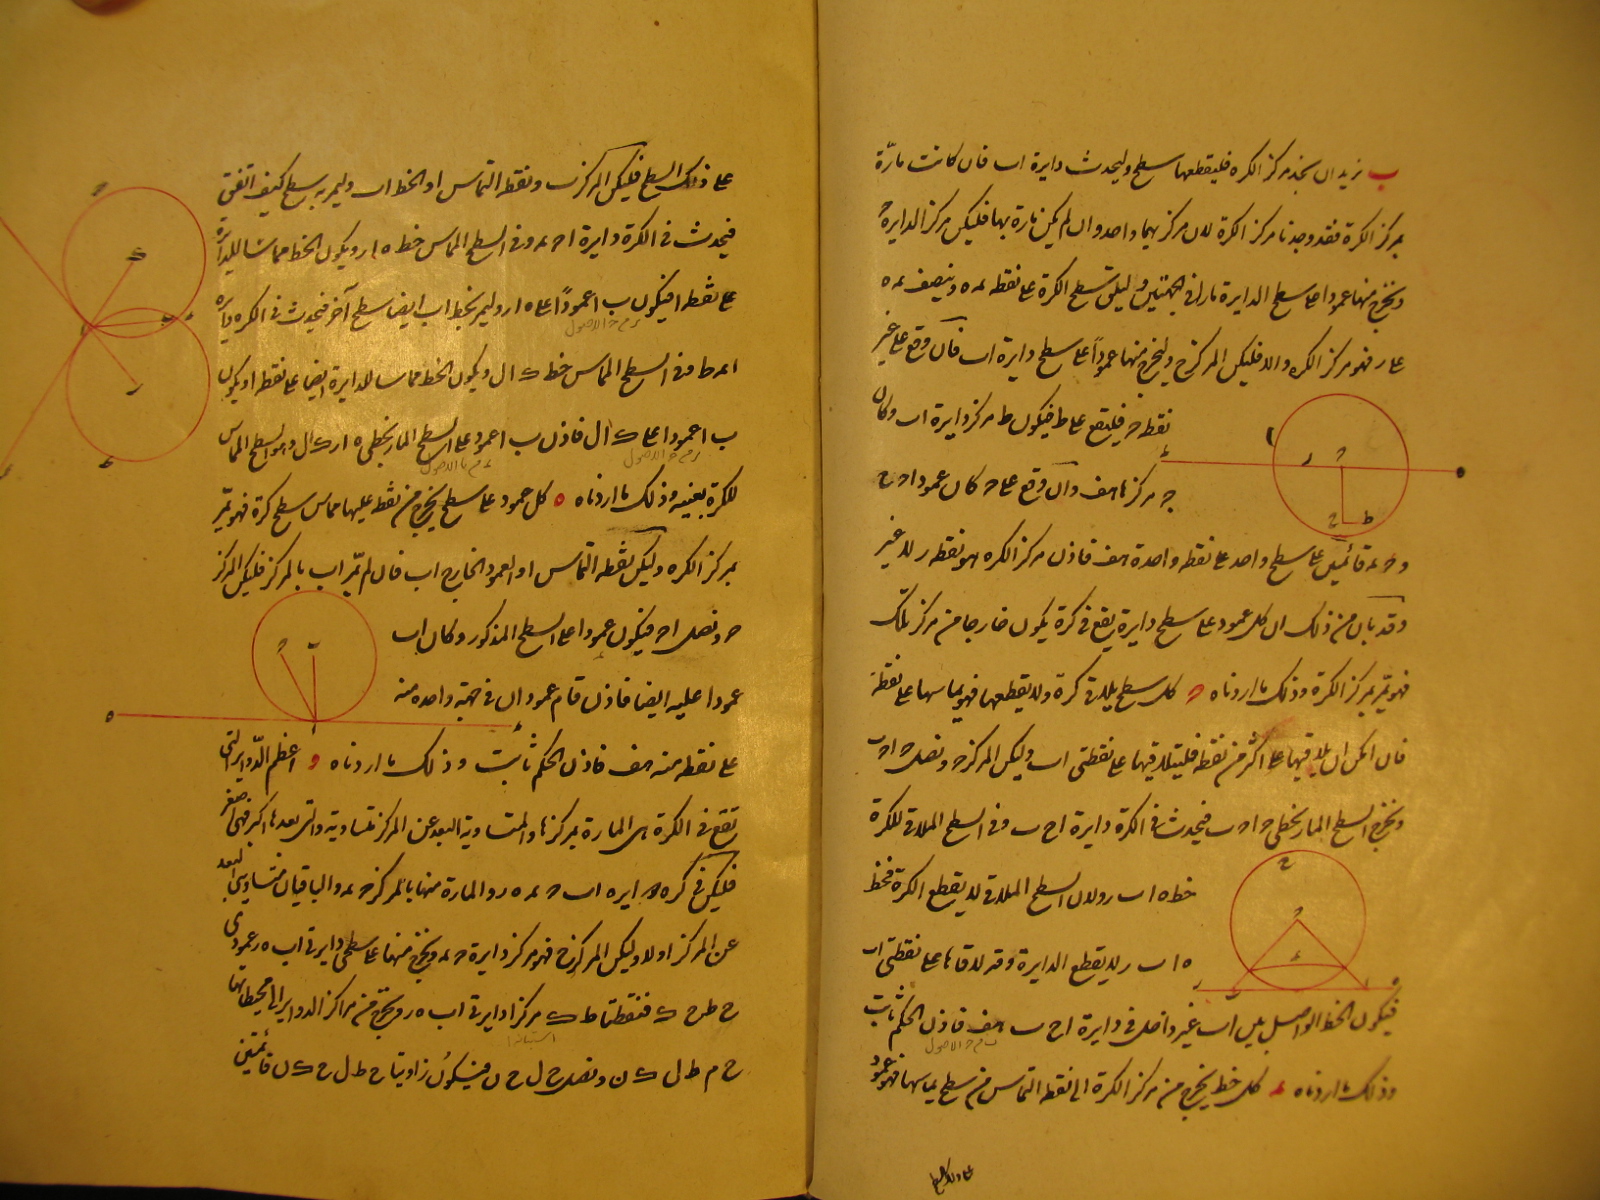 ب نريد ان نجد مركز الكرة فليقطعها سطح وليحدث دايرة اب فان كانت مارّة
بمركز الكرة فقد وجدنا مركز الكرة لان مركزيهما واحد وان لم يكن مارة بها فليكن مركز الدايرة ح
ونخرج منها عمودا على سطح الدايرة مارا في الجهتين وليلق سطح الكرة على نقطه ء ه وينصف ء ه
على ر فهو مركز الكره والا فليكن المركز ح وليخرج منها عموداً على سطح دايرة اب فان وقع على غير
نقطه ح فليقع على ط فيكون ط مركز دايرة اب وكان
ح مركزها هف وان وقع على ح كان عمودا ح ح
و ح ء قائمين على سطح واحد على نقطه واحدة هف فاذن مركز الكره هو نقطه ر لا غير
وقد بان من ذلك ان كل عمود على سطح دايرة يقع في كرة يكون خارجا من مركز تلك
فهو يمّر بمركز الكرة وذلك ما اردناه ح كل سطح يلاقي كرة ولا يقطعها فهو يماسها على نقطة
فان امكن ان يلاقيها على اكثر من نقطة فليلاقيها على نقطتى اب وليكن المركز ح ونصل ح ا ح ب
ونخرج السطح المار بخطى ح ا ح ب فيحدث في الكرة دايرة ا ح ب وفي السطح الملاقي للكرة
خط ه اب ر ولان السطح الملاقي لا يقطع الكرة فخط
ه اب ر لا يقطع الدايرة وقد لاقاها على نقطتى اب
فيكون الخط الواصل بين اب غير داخل في دايرة ا ح ب هف فاذن الحكم ثابت
ب م ح الاصول
وذلك ما اردناه ء كل خط يخرج من مركز الكرة الى نقطة التماس من سطح يماسها فهو عمود
على ذلك السطح
على ذلك السطح فليكن المركز ب ونقطة التماس ا والخط اب وليمر به سطح كيف اتفق
فيحدث في الكرة دايرة ا ح ء وفي السطح المماس خط ه ا ر ويكون الخط مماسا للدايرة
على نقطه ا فيكون ب ا عموداً على ه ا ر وليمر بخط اب ايضا سطح آخر فيحدث في الكره دايرة
م ح الاصول
ا ء ط وفي السطح المماس خط ك ا ل ويكون الخط مماسا للدايرة ايضا على نقطه ا ويكون
ب ا عمودا على ك ا ل فاذن ب ا عمود على السطح المار بخطى ه ا ر ك ا ل وهو السطح المماس
م ح الاصول م يا الاصول
للكرة بعينه وذلك ما اردناه ه كل عمود على سطح يخرج من نقطه عليها مماس سطح كرة فهو يمّر
بمركز الكره وليكن نقطه التماس ا والعمود الخارج اب فان لم يمّر اب بالمركز فليكن المركز
ح ونصل ا ح فيكون عمودا على السطح المذكور وكان اب
عمودا عليه ايضا فاذن قام عمودان في جهة واحده منه
على نقطه منه هف فاذن الحكم ثابت وذلك ما اردناه و اعظم الدّواير التي
تقع في الكرة هى المارة بمركزها والمتساوية البعد عن المركز متساوية والتى بعدها اكبر فهى اصغر
فليكن في كره دايره اب ح ء ه ر والمارة منها بالمركز ح ء والباقيان متساويتى البعد
عن المركز اولا وليكن المركز ح فهو مركز دايرة ح ء ونخرج منها على سطحى دايرتى اب ه ر عمودى
ح ط ح ك فنقطتا ط ك مركزا دايرتى اب ه ر ونخرج من مراكز الدواير الى محيطاتها
ح م ط ل ك ن ونصل ح ل ح ن فيكون زاويتا ح ط ل ح ك ن قائمتين